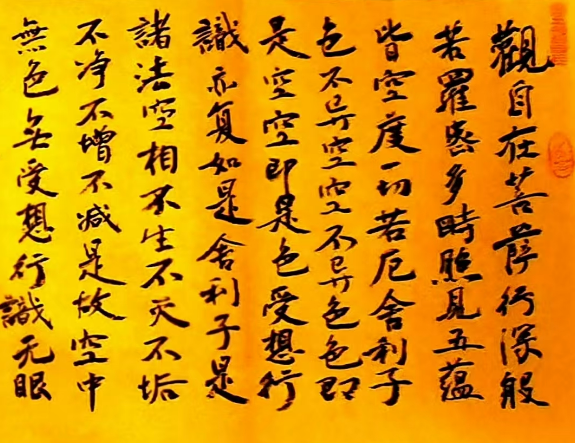 觀自在菩薩行深般
若羅密多時照見五蘊
皆空度一切若厄舍利子
色不异空空不异色色即
是空空即是色受想行
識亦复如是舍利子是
諸法空相不生不灭不垢
不净不增不减是故空中
無色无受想行識无眼